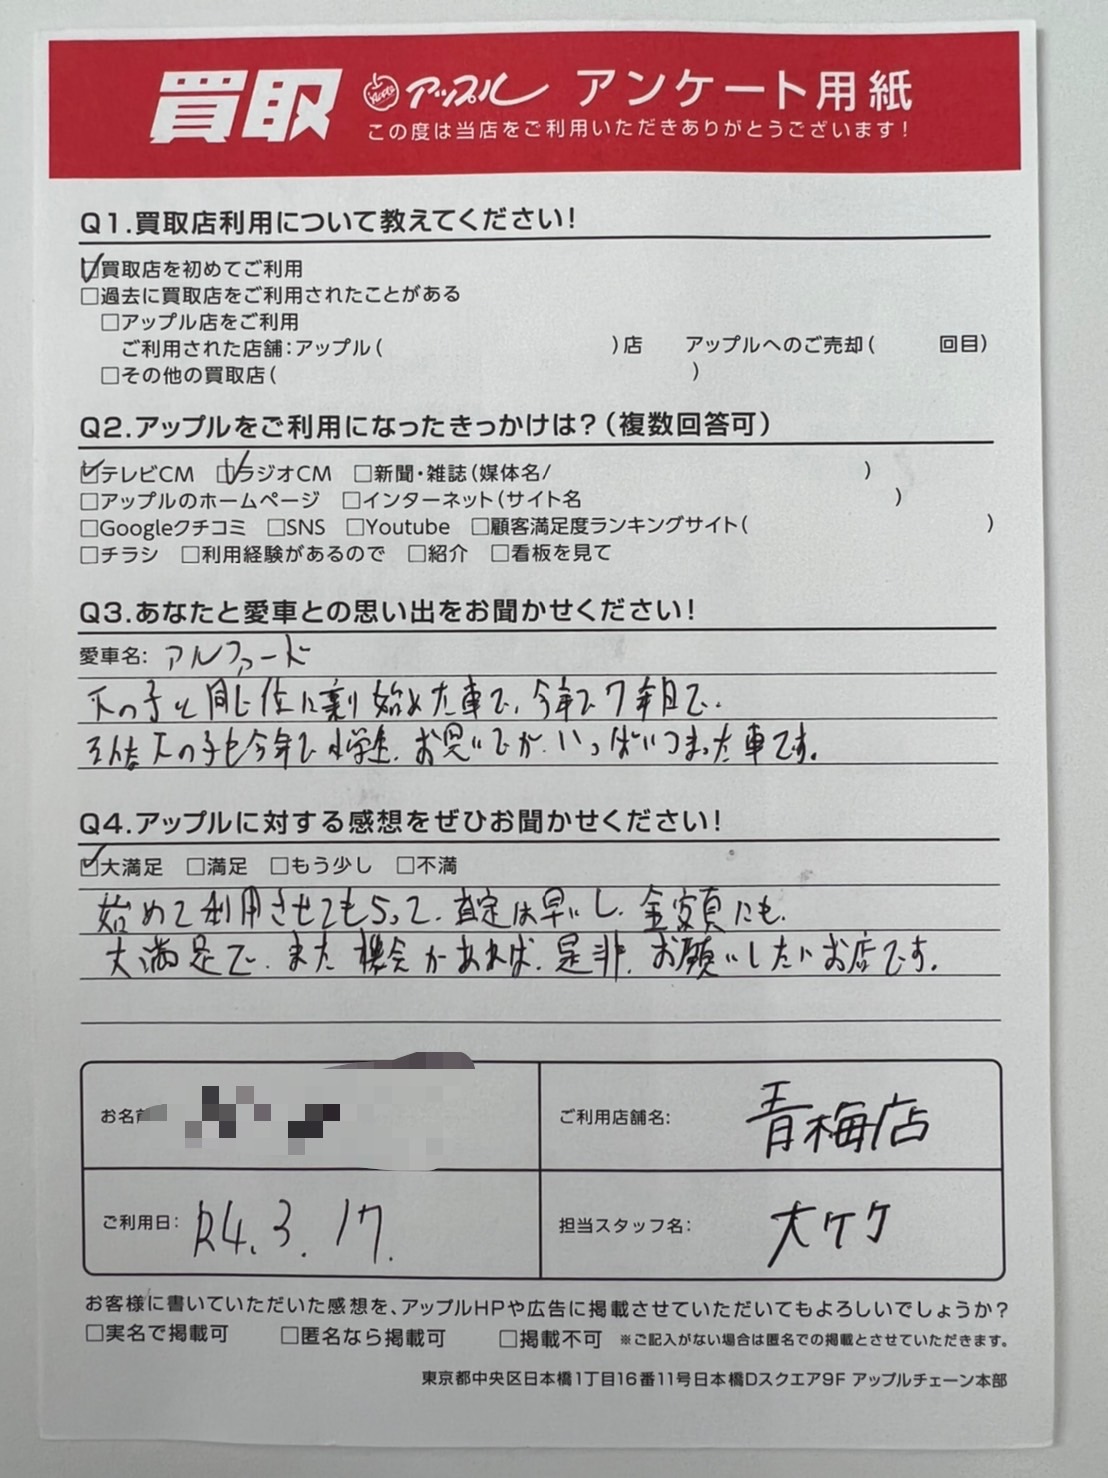 買取 Apple アップル アンケート用紙
この度は当店をご利用いただきありがとうございます!
Q1.買取店利用について教えてください!
☑買取店を初めてご利用
□過去に買取店をご利用されたことがある
□アップル店をご利用
ご利用された店舗:アップル( )店 アップルへのご売却( 回目)
□その他の買取店( )
Q2.アップルをご利用になったきっかけは?(複数回答可)
☑テレビCM ☑ラジオCM □新聞・雑誌(媒体名/ )
□アップルのホームページ □インターネット(サイト名 )
□Googleクチコミ □SNS □Youtube □顧客満足度ランキングサイト( )
□チラシ □利用経験があるので □紹介 □看板を見て
Q3.あなたと愛車との思い出をお聞かせください!
愛車名: アルファード
下の子と同じ位に乗り始めた車で、今年で7年目で、
下の子も今年で小学生、お思いでが、いっぱいつまった車です。
Q4.アップルに対する感想をぜひお聞かせください!
☑大満足 □満足 □もう少し □不満
始めて利用させてもらって、査定は早いし、金額にも、
大満足で、また機会があれば、是非、お願いしたいお店です。
お名前
ご利用店舗名: 青梅店
ご利用日: R4.3.17.
担当スタッフ名: 大ケケ
お客様に書いていただいた感想を、アップルHPや広告に掲載させていただいてもよろしいでしょうか?
□実名で掲載可 □匿名なら掲載可 □掲載不可 ※ご記入がない場合は匿名での掲載とさせていただきます。
東京都中央区日本橋1丁目16番11号日本橋Dスクエア9F アップルチェーン本部